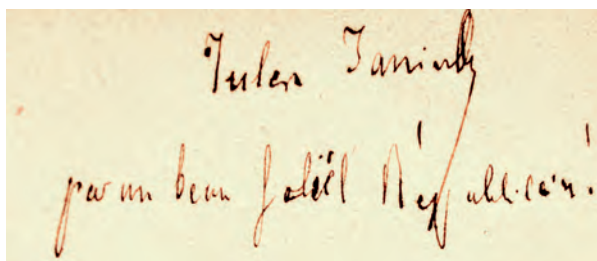 Jules
par un beau Soleil Républicain!